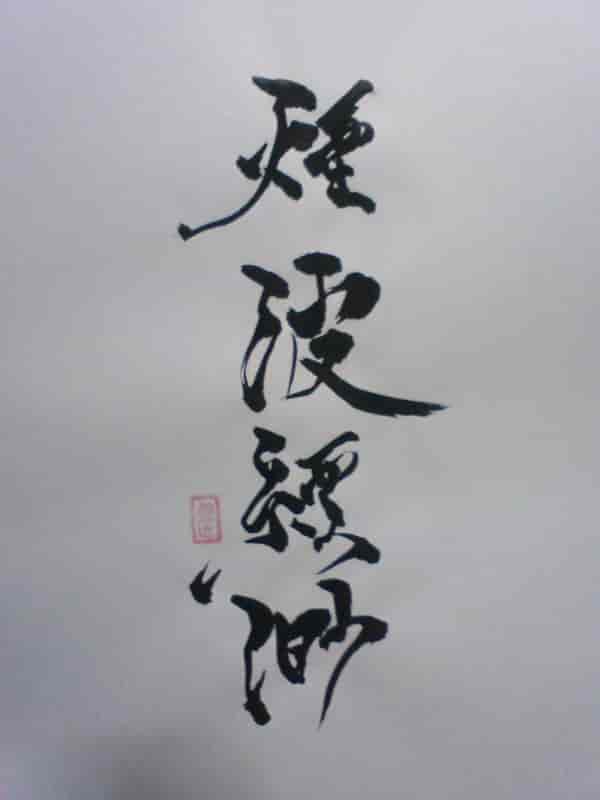 煙波縹渺